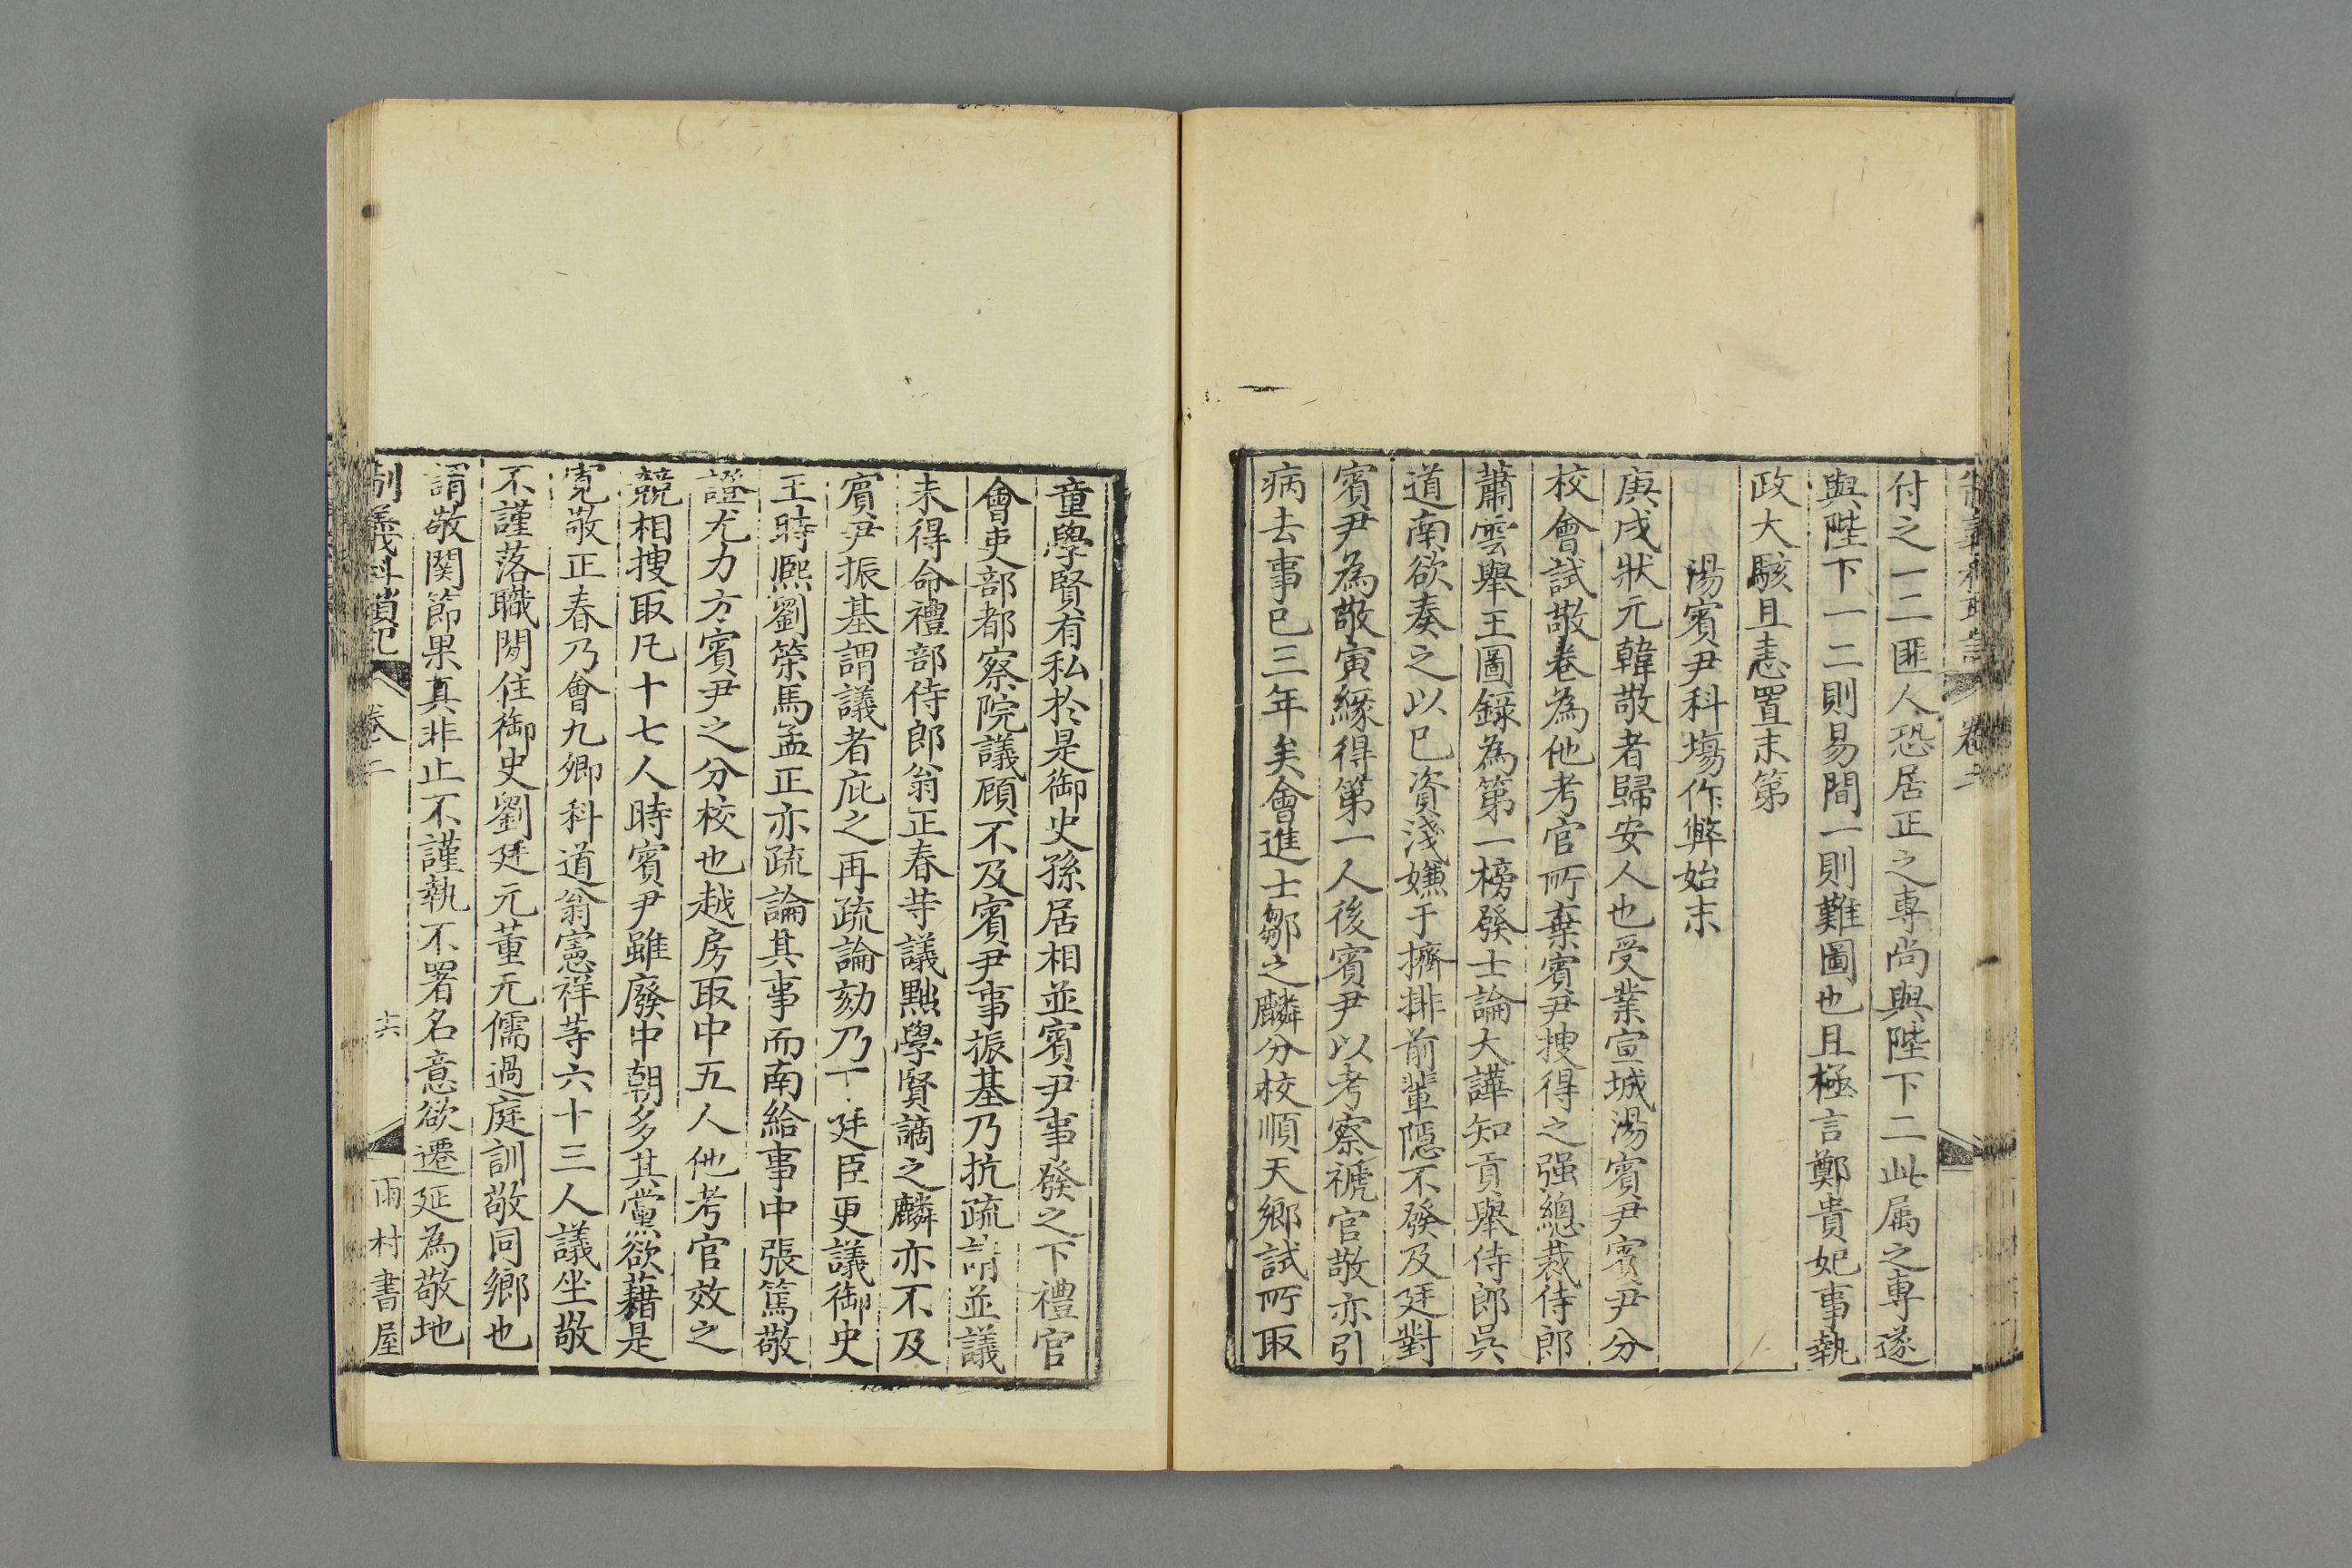 付之一二匪人恐居正之專尚與陛下二此属之專遂
與陛下一二則易間一則難圖也且極言鄭貴妃事執
政大駭且恚置末第
湯賓尹科塲作弊始末
庚戌狀元韓敬者歸安人也受業宣城湯賓尹賓尹分
校會試敬卷為他考官所棄賓尹搜得之强總裁侍郎
蕭雲舉王圖錄為第一榜發士論大譁知貢舉侍郎吳
道南欲奏之以已資淺嫌于擠排前輩隱不發及廷對
賓尹為敬寅緣得第一人後賓尹以考察褫官敬亦引
病去事已三年矣會進士鄒之麟分校順天鄉試所取
童學賢有私於是御史孫居相並賓尹事發之下禮官
會吏部都察院議顧不及賓尹事振基乃抗疏請並議
未得命禮部侍郎翁正春等議黜學賢謫之麟亦不及
賓尹振基謂議者庇之再疏論劾乃下廷臣更議御史
王時熈劉策馬孟正亦疏論其事而南給事中張篤敬
證尤力方賓尹之分校也越房取中五人他考官效之
競相搜取凡十七人時賓尹雖廢中朝多其黨欲藉是
寬敬正春乃會九卿科道翁憲祥等六十三人議坐敬
不謹落職閒住御史劉廷元董元儒過庭訓敬同鄉也
謂敬関節果真非止不謹執不署名意欲遷延為敬地
制義科瑣記 卷二 十六 雨村書屋